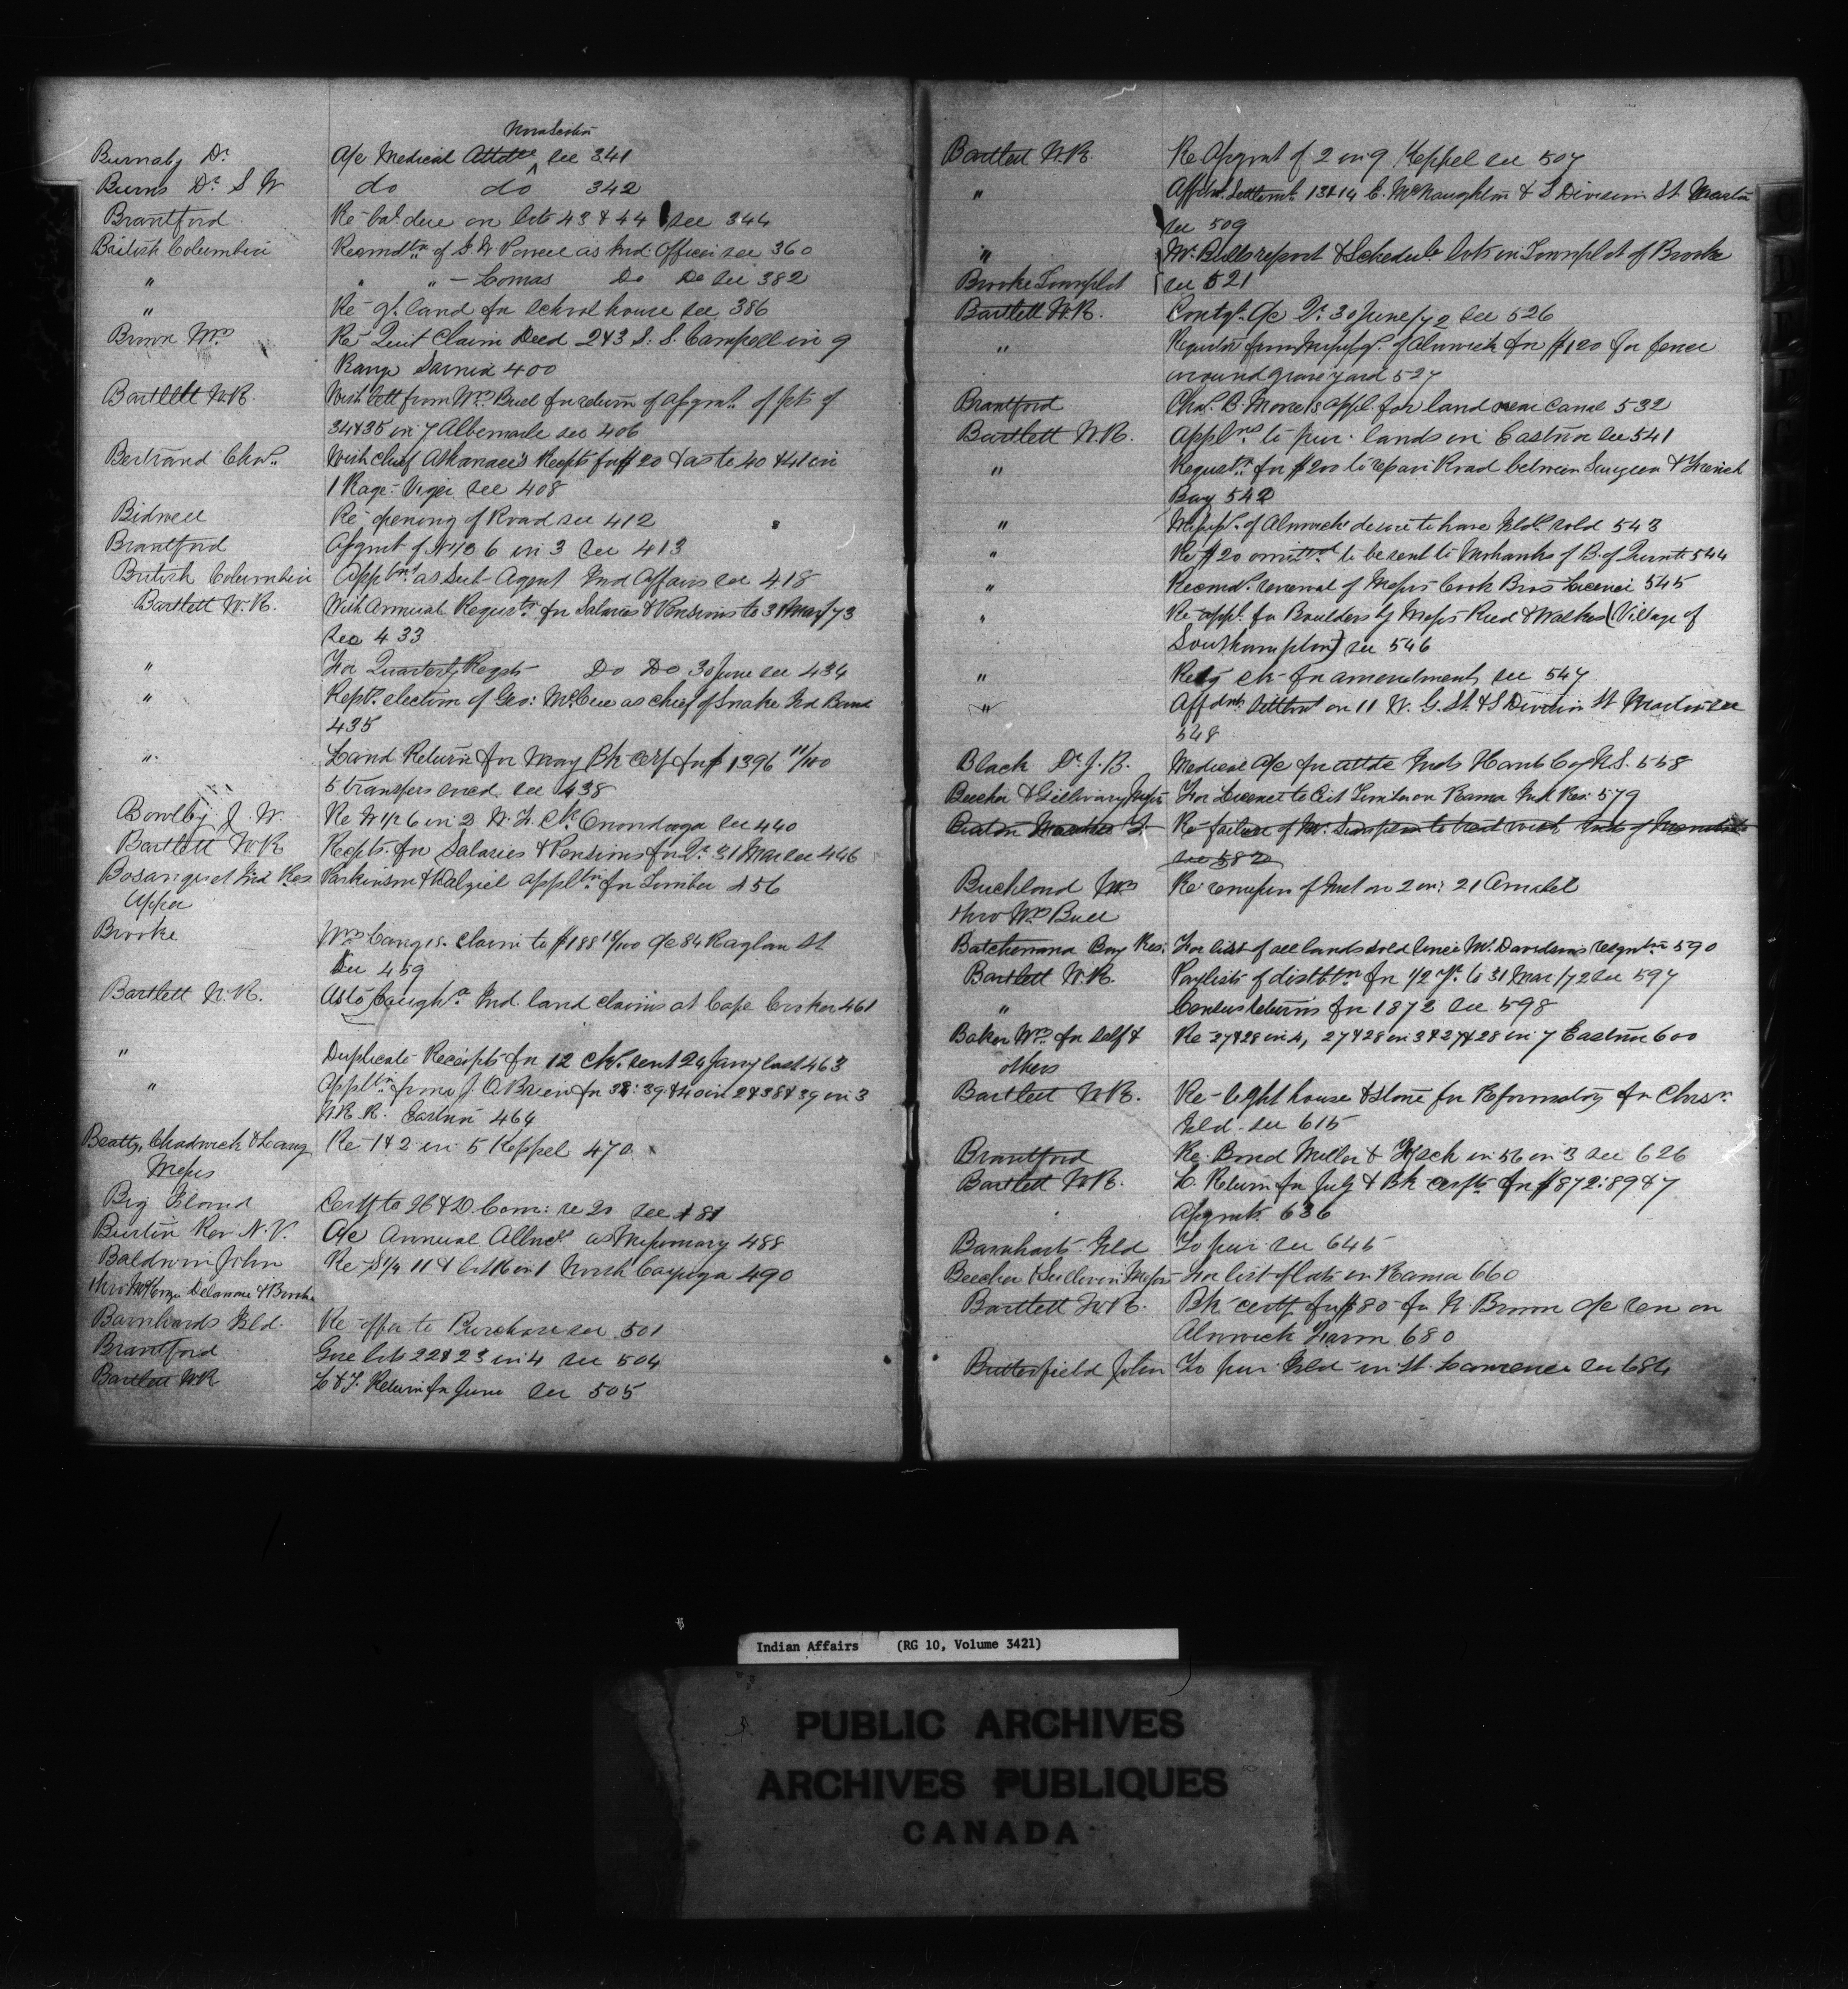 Nova Scotia
Burnaby Dr. A/c Medical Attdce see 341
Burns Dr. S W do do 342
Brantford Re bal. due on lots 43 & 44 see 344
British Columbia Recomdtn of J. W. Powell as Ind Officer see 360
" " " – Comas Do Do see 382
" Re gt. land for school house see 386
Brown Wm Re Quit Claim Deed 2 & 3 S. S. Campbell in 9
Range Sarnia 400
Bartlett W. R. With lett from Wm. Buell for return of Asgnmt. of pts of
34 & 35 in 7 Albemarle see 406
Bertrand Chas. With chief Athanace's Recpts for $20 & as to 40 & 41 in
1 Rage: Viger see 408
Bidwell Re opening of Road see 412
Brantford Asgnmt of N 1/2 6 in 3 see 413
British Columbia Appt. as Sub-Agent Ind Affairs see 418
Bartlett W. R. With Annual Requstn for Salaries & Pensions to 31 Mar/73
see 433
" For Quarterly Reqst Do Do 30 June see 434
" Rept. election of Geo: McCue as chief of Snake Ild Band
435
" Land Return for May Bk Cert for $1396 11/100
5 transfers encd. see 438
Bowlby J. W. Re W 1/2 6 in 3 Onondaga see 440
Bartlett W. R. Recpts. for Salaries & Pensions for Qr. 31 Mar see 446
Bosanquet Ind Res Parkinson & Dalziel appltn for Timber 456
Upper
Brooke Wm claim to $188 18/100 a/c 84 Raglan St
See 459
Bartlett W. R. As to Ind. land claims at Cape Croker 461
" Duplicate Receipts for 12 chs. sent 24 Jany last 463
" Appltn from J. O'Brien for 38: 39 & 40 in 2 & 38 & 39 in 3
W. B. R. Eastnor 464
Beatty, Chadwick & Lang Re 1 & 2 in 5 Keppel 470
Messrs
Big Island Certf to see 481
Burtin Rev. N. V. A/c Annual Allnce as Missionary 488
Baldwin John Re S 1/4 11 & lot 16 in 1 North Cayuga 490
thro McKenzie Delamere &
Barnhards Ild. Re offer to Purchase see 501
Brantford Gore lots 22 & 23 in 4 see 504
Bartlett W R L & T. Return for June see 505
Bartlett W. R. Re Asgnmt of 2 in 9 Keppel see 507
" Affdvt. Settlemt 13 & 14 C. McNaughton & S Division St.
see 509
" Mr. Bulls report & Schedule lots in Townplot of Brooke
Brooke Townplot see 521
Bartlett W. R. Contgt. a/c Qr. 30 June/72 see 526
" Requstn from Missisgs. of Alnwick for $120 for fence
around graveyard 527
Brantford Chas. B. appl. for land near Canal 532
Bartlett W. R. Applns to pur. lands in Eastnor see 541
" Requstn. for $200 to repair Road between Saugeen & French
Bay 542
" Missis. of Alnwick desire to have Ilds. sold 543
" Re $20 omitted to be sent to Mohawks of B. of Quinte 544
" Recomd. renewal of Messrs Cook Bros Licence 545
" Re appl. for Boulders by Messrs Reed & Walker (Village of
Southampton) see 546
" Retg ch for amendment see 547
" Affdvt. Settlemt on 11 W. G. St. & S Division St see
548
Black Dr. J. B. Medical a/c for attdce Inds Hants Coy N.S. 558
Beecher & Messrs For Licence to Cut Timber on Rama Ind Res: 579
Re failure of Mr. Simpson to treat with Inds of
see 582
Buckland Wm Re remission of Int on 2 in: 21 Amabel
thro Wm Buell
Batchewana Bay Res: For list of all lands sold since Mr. Davidson's resgntn 590
Bartlett W. R. Paylists of distbtn for 1/2 Yr. to 31 Mar/72 see 597
" Census returns for 1872 see 598
Baker Wm for self & Re 27 & 28 in 4, 27 & 28 in 3 & 27 & 28 in 7 Eastnor 600
others
Bartlett W. R. Re light house & stone for Reformatory for Chrsn.
Ild. see 615
Brantford Re Bond Miller & in 56 in 3 see 626
Bartlett W. R. L. Return for July & Bk certft for $872:89 & 7
Asgnmts. 636
Barnharts Ild To pur. see 645
Beecher & Sullivan Messrs For list of lots in Rama 660
Bartlett W. R. Bk certf for $80 for N. Brown a/c ren on
Alnwick Farm 680
Butterfield John To pur. Ild in St. Lawrence see 684
Indian Affairs (RG 10, Volume 3421)
PUBLIC ARCHIVES
ARCHIVES PUBLIQUES
CANADA